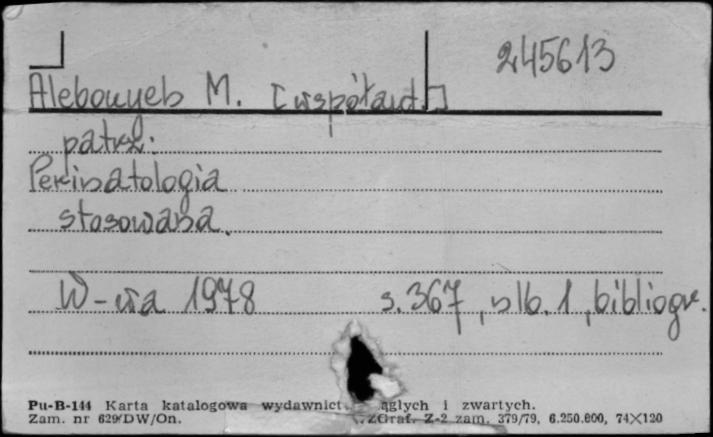 245613
Alebouyeh M. [współaut.]
patrz:
Perinatologia
stosowana.
W-wa 1978 s. 367, nlb. 1, bibliogr.
Pu-B-144 Karta katalogowa wydawnict ągłych i zwartych.
Zam. nr 629/DW/On. ZGraf. Z-2 zam. 379/79, 6.250.000, 74×120